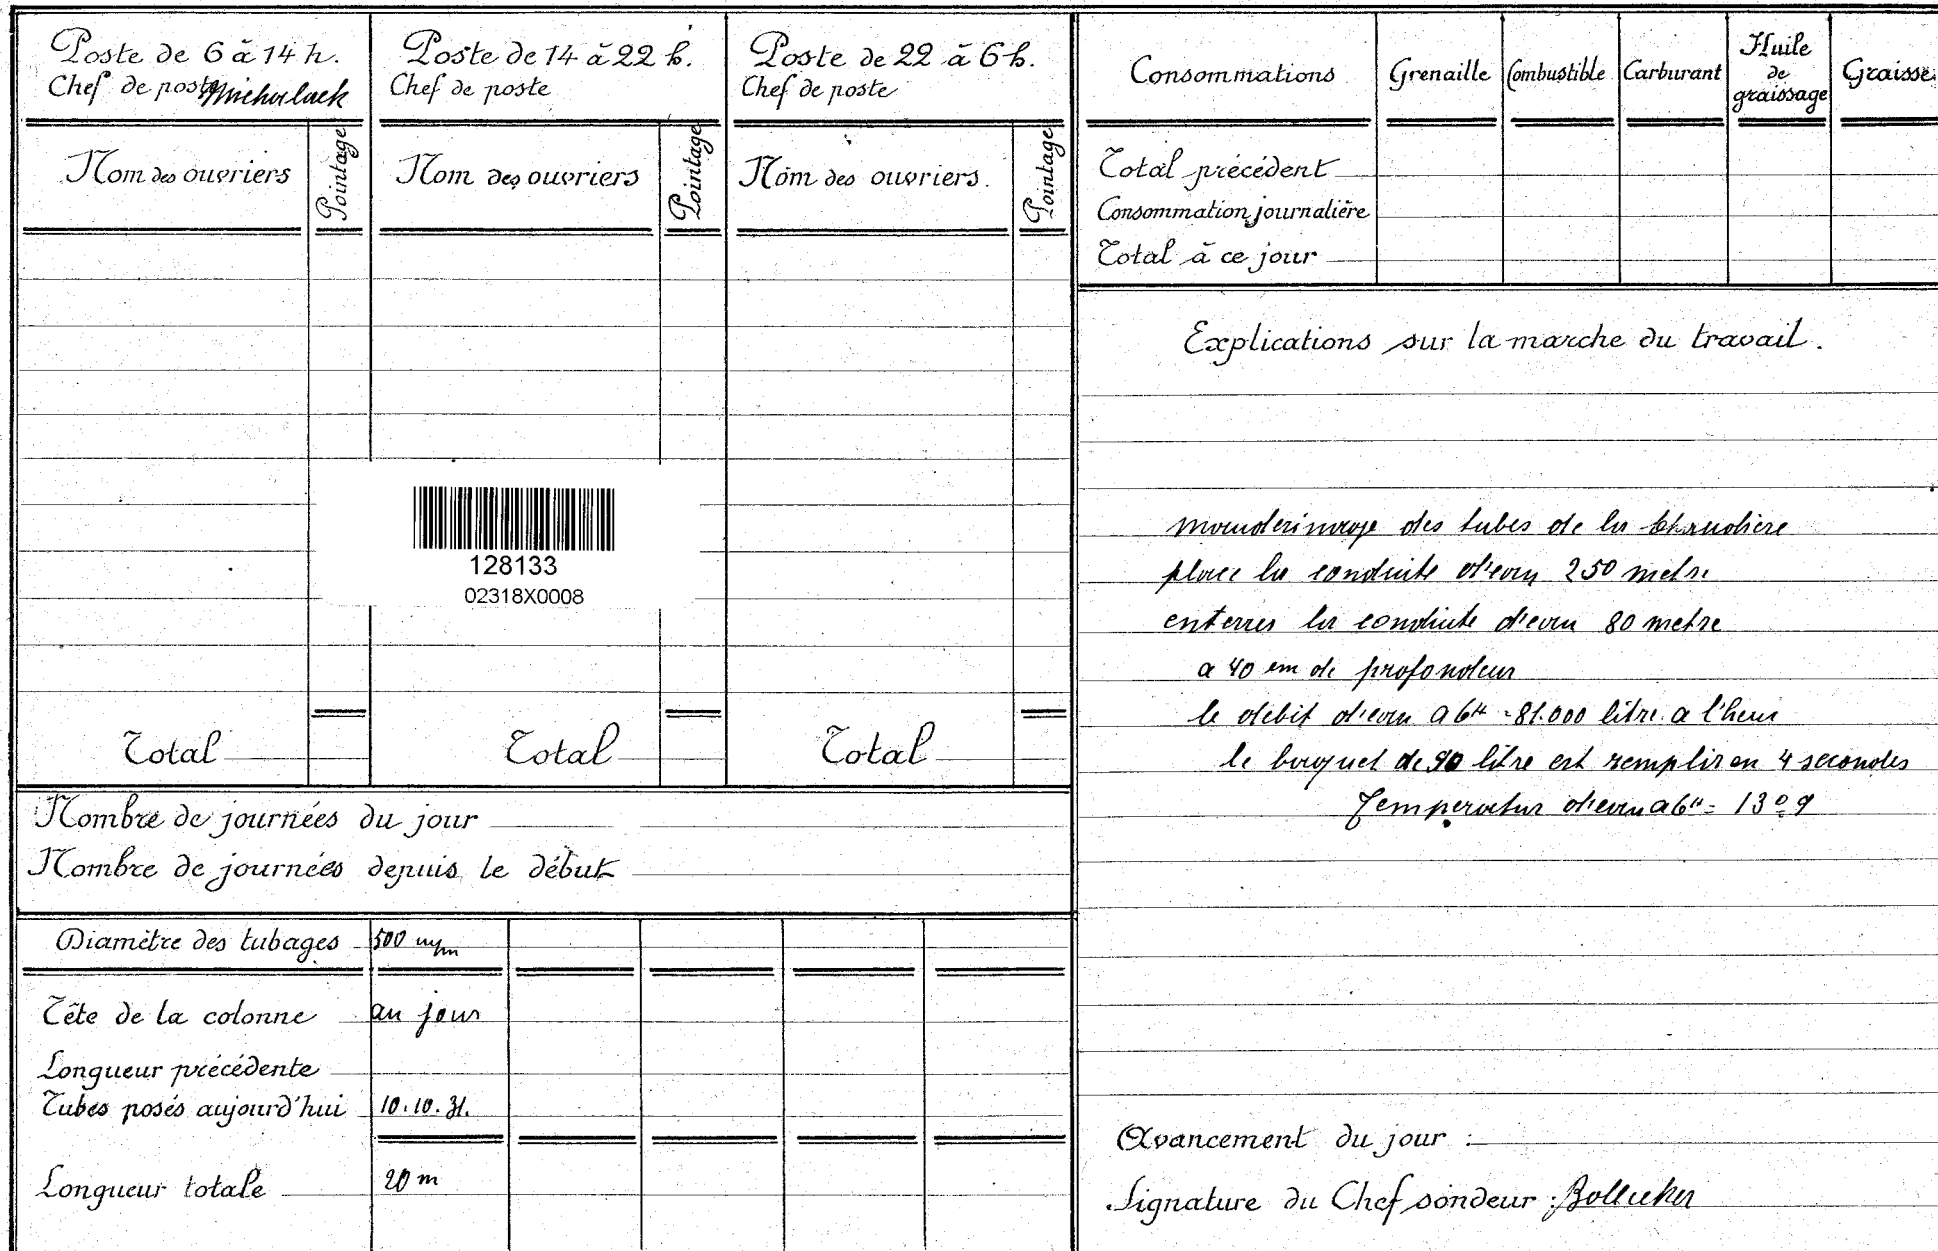 Poste de 6 à 14 h.
Chef de poste Michalack
Nom des ouvriers
Pointage
Total
Poste de 14 à 22 h.
Chef de poste
Nom des ouvriers
Pointage
Total
Poste de 22 à 6 h.
Chef de poste
Nom des ouvriers.
Pointage
Total
128133
02318X0008
Nombre de journées du jour
Nombre de journées depuis le début
Diamètre des tubages 500 m/m
Tête de la colonne au jour
Longueur précédente
Tubes posés aujourd'hui 10.10.31.
Longueur totale 20 m
Consommations Grenaille Combustible Carburant Huile de graissage Graisse
Total précédent
Consommation journalière
Total à ce jour
Explications sur la marche du travail.
des tubes de la chaudière
place la conduite d'eau 250 metre
enterres la conduite d'eau 80 metre
a 40 cm de profondeur
le debit d'eau a 6H = 81.000 litre a l'heur
le baquet de 90 litre est remplir en 4 secondes
Temperatur d'eau a 6H = 13°9
Avancement du jour :
Signature du Chef sondeur : Bollecker